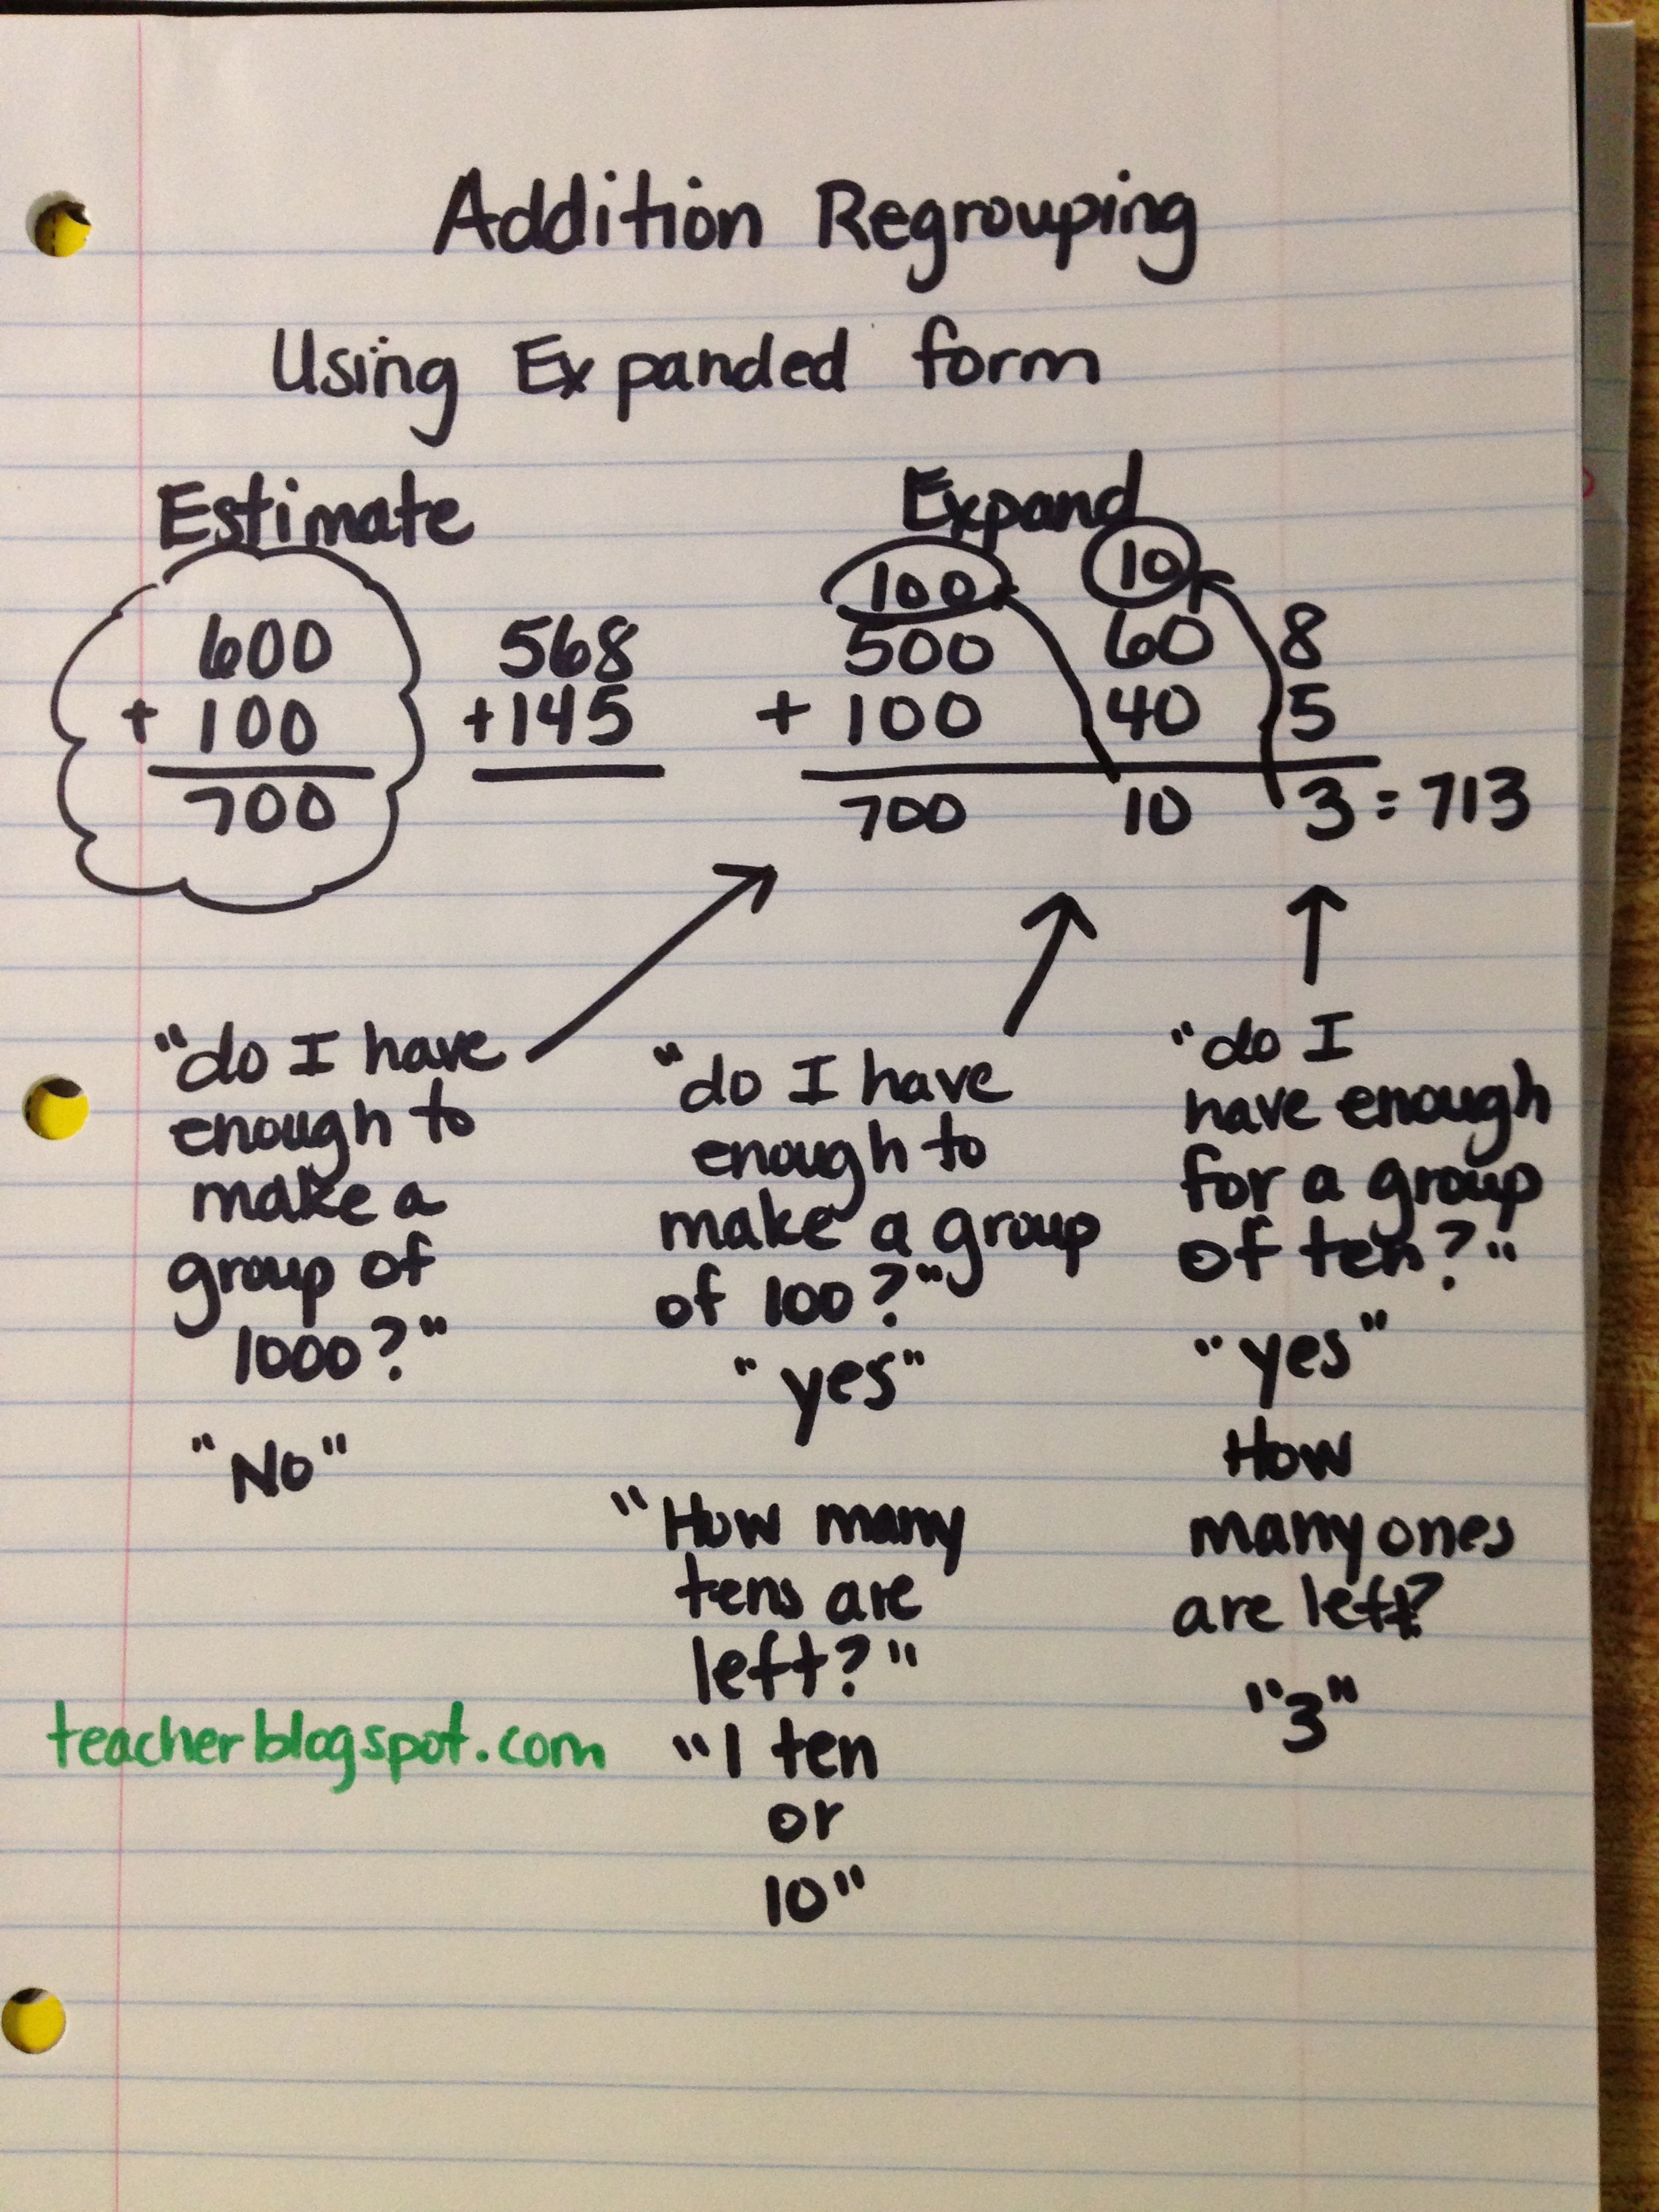 Addition Regrouping
Using Expanded form
Estimate
600
+ 100
700
568
+145
Expand
100 10
500 60 8
+ 100 40 5
700 10 3 = 713
"do I have
enough to
make a
group of
1000?"
"No"
"do I have
enough to
make a group
of 100?"
"yes"
"How many
tens are
left?"
"1 ten
or
10"
"do I
have enough
for a group
of ten?"
"yes"
How
many ones
are left?
"3"
teacherblogspot.com